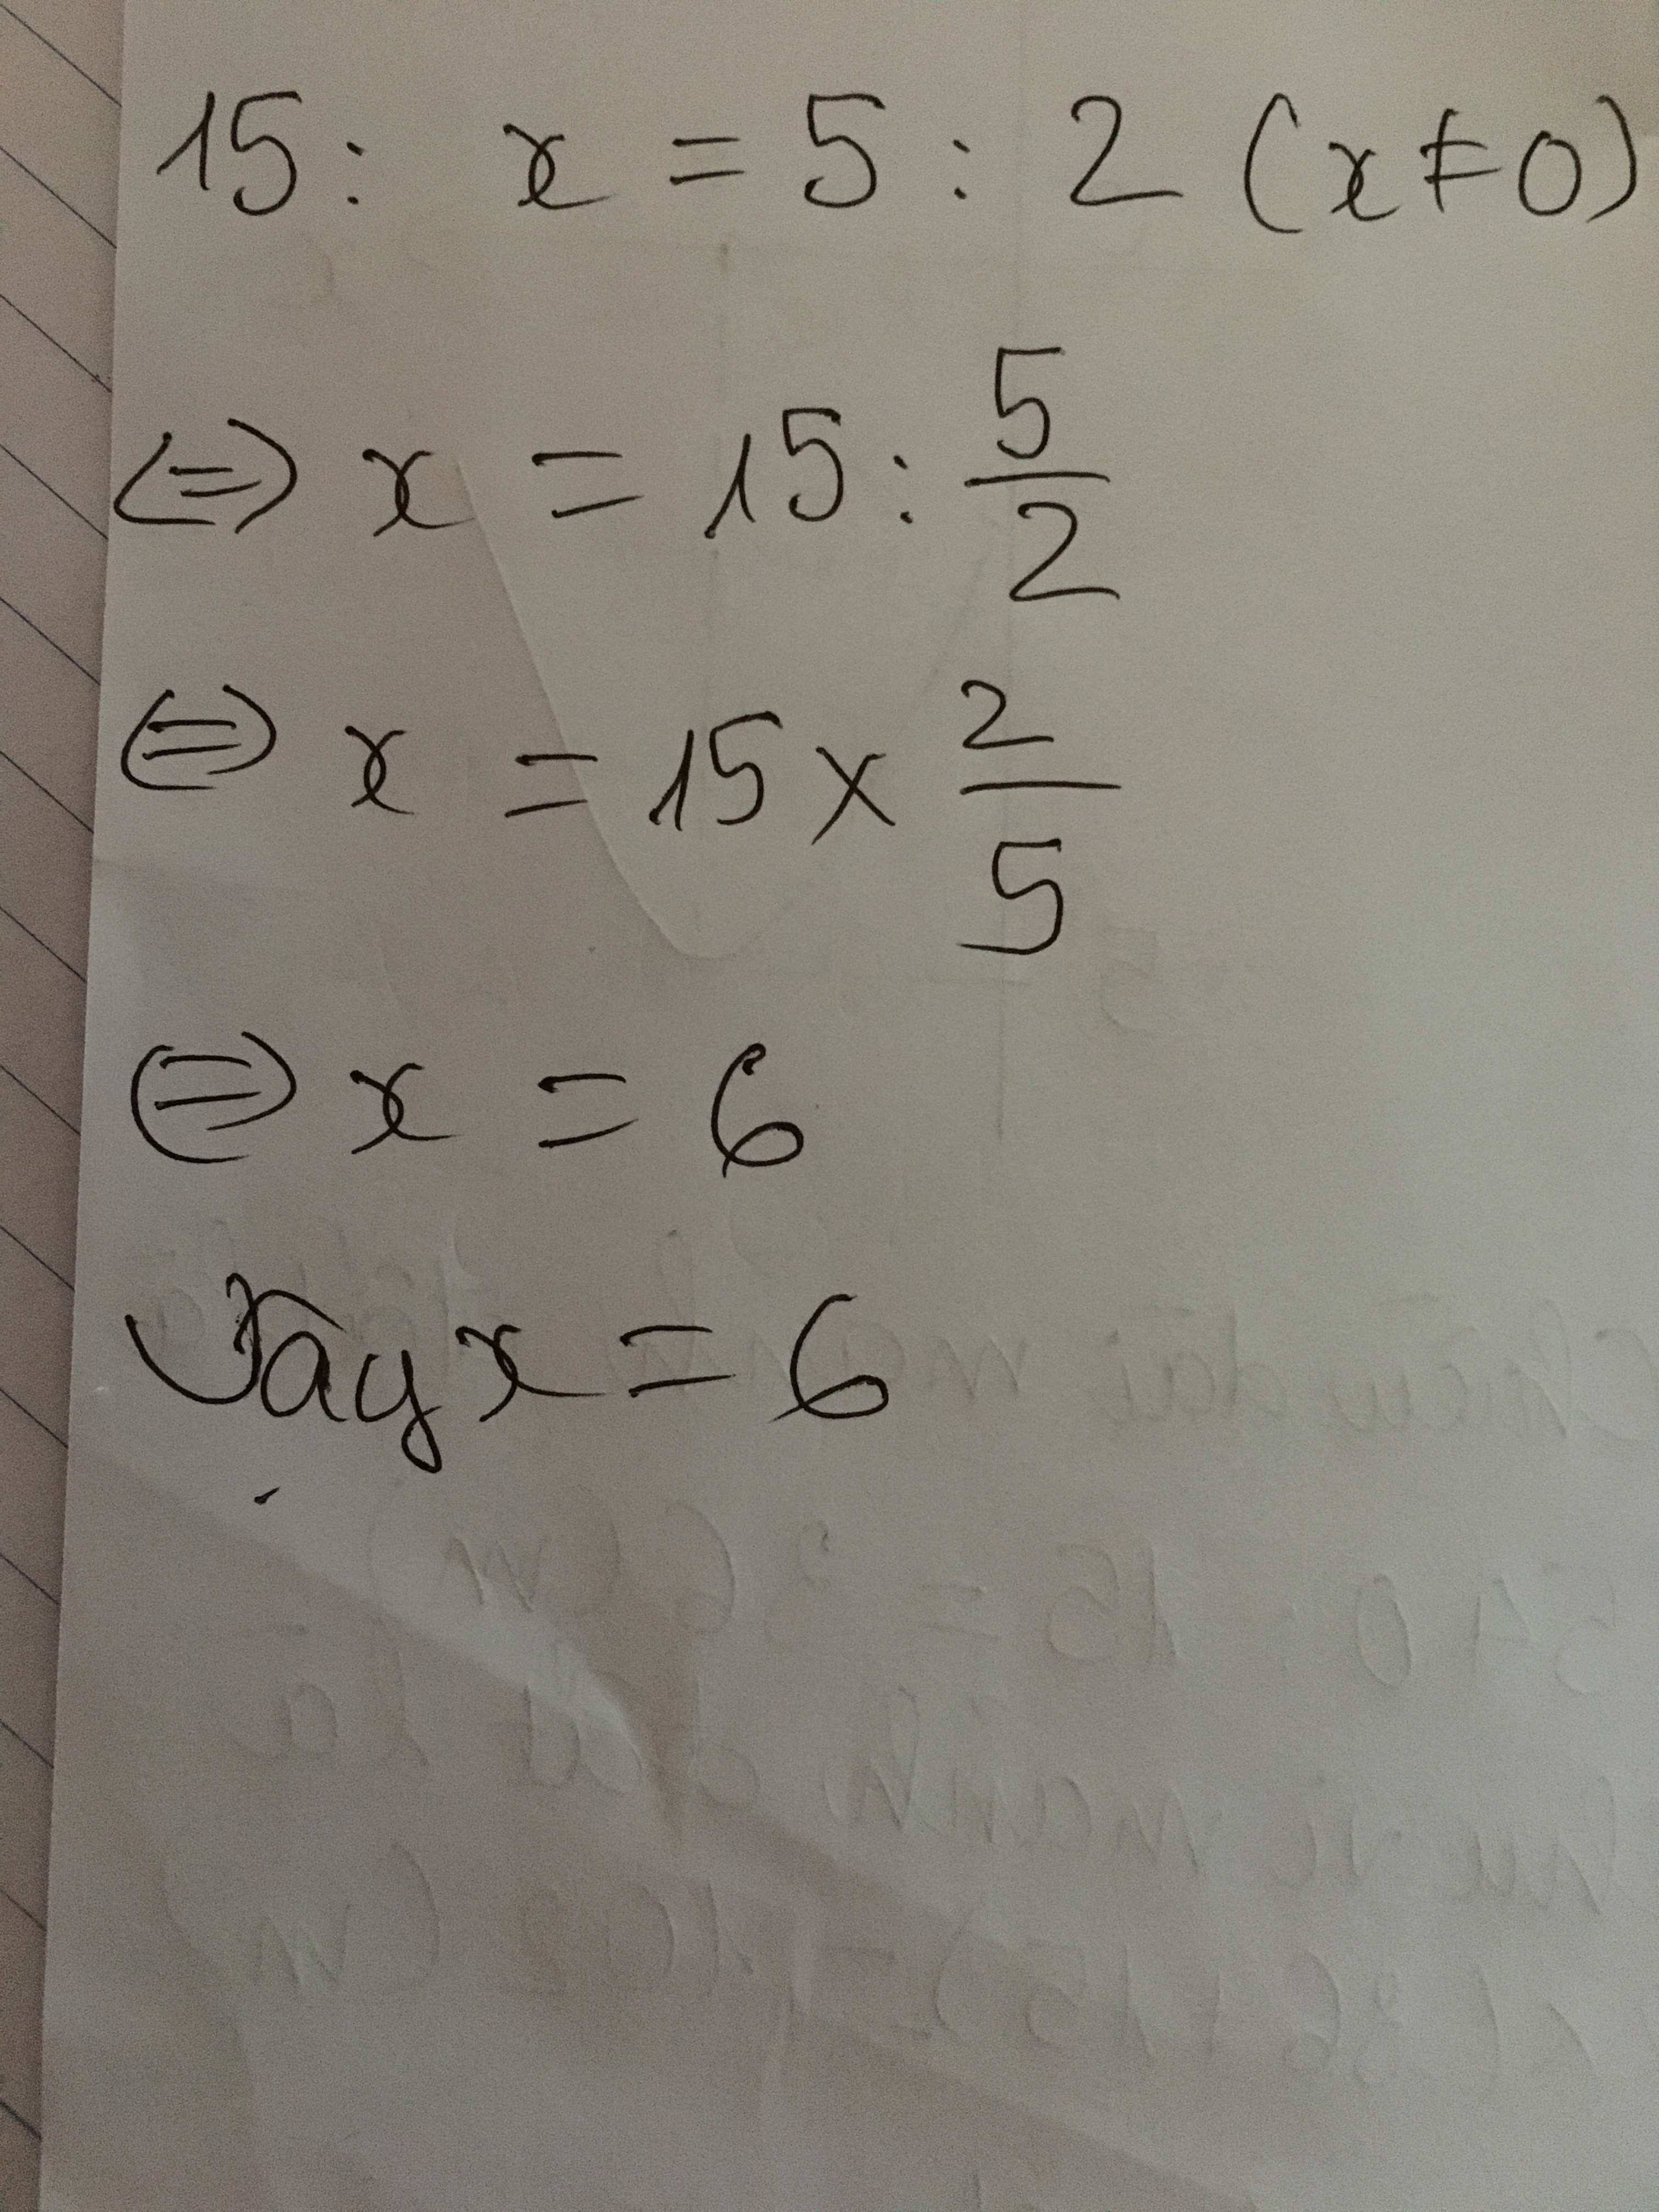 15 : x = 5 : 2 (x ≠ 0)
⇔ x = 15 : 5/2
⇔ x = 15 × 2/5
⇔ x = 6
Vậy x = 6